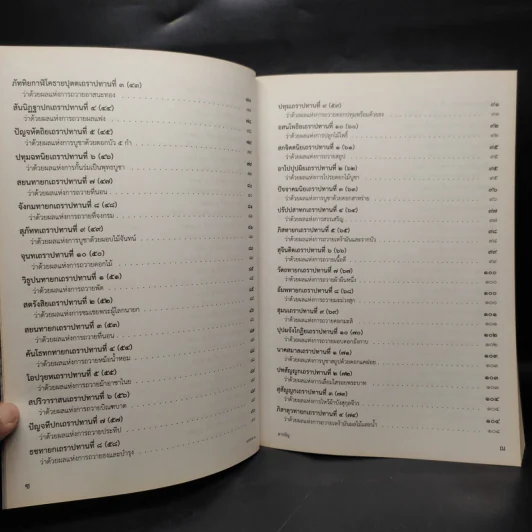 ภัททิยกาฬิโคธายปุตตเถราปทานที่ ๓ (๔๓)
ว่าด้วยผลแห่งการถวายอาสนะทอง
สันนิฏฐาปกเถราปทานที่ ๔ (๔๔)
ว่าด้วยผลแห่งการถวายผลแฟง
ปัญจหัตถิยเถราปทานที่ ๕ (๔๕)
ว่าด้วยผลแห่งการบูชาด้วยดอกบัว ๕ กำ
ปทุมฉทนิยเถราปทานที่ ๖ (๔๖)
ว่าด้วยผลแห่งการกั้นร่มเป็นพุทธบูชา
สยนทายกเถราปทานที่ ๗ (๔๗)
ว่าด้วยผลแห่งการถวายที่นอน
จังกมทายกเถราปทานที่ ๘ (๔๘)
ว่าด้วยผลแห่งการถวายที่จงกรม
สุภัททเถราปทานที่ ๙ (๔๙)
ว่าด้วยผลแห่งการบูชาด้วยมอบไม้จันทน์
จุนทเถราปทานที่ ๑๐ (๕๐)
ว่าด้วยผลแห่งการถวายดอกไม้
วิธูปนทายกเถราปทานที่ ๑ (๕๑)
ว่าด้วยผลแห่งการถวายพัด
สตรังสิยเถราปทานที่ ๒ (๕๒)
ว่าด้วยผลแห่งการชมเชยพระผู้โลกนายก
สยนทายกเถราปทานที่ ๓ (๕๓)
ว่าด้วยผลแห่งการถวายที่นอน
คันโธทกทายกเถราปทานที่ ๔ (๕๔)
ว่าด้วยผลแห่งการถวายหม้อน้ำหอม
โอปวุยหเถราปทานที่ ๕ (๕๕)
ว่าด้วยผลแห่งการถวายม้าอาชาไนย
สปริวาราสนเถราปทานที่ ๖ (๕๖)
ว่าด้วยผลแห่งการถวายบิณฑบาต
ปัญจทีปกเถราปทานที่ ๗ (๕๗)
ว่าด้วยผลแห่งการถวายประทีป
ธชทายกเถราปทานที่ ๘ (๕๘)
ว่าด้วยผลแห่งการถวายธงและบำรุง
ปทุมเถราปทานที่ ๙ (๕๙) ๙๒
ว่าด้วยผลแห่งการถวายดอกปทุมพร้อมด้วยธง ๙๒
อสนโพธิยเถราปทานที่ ๑๐ (๖๐)
ว่าด้วยผลแห่งการปลูกไม้โพธิ์
สกจิตตนิยเถราปทานที่ ๑ (๖๑)
ว่าด้วยผลแห่งการถวายสถูป
อาโปปุปผิยเถราปทานที่ ๒ (๖๒)
ว่าด้วยผลแห่งการโปรยดอกไม้บูชา
ปัจจาคมนิยเถราปทานที่ ๓ (๖๓)
ว่าด้วยผลแห่งการบูชาด้วยดอกสาหร่าย
ปรัปปสาทกเถราปทานที่ ๔ (๖๔)
ว่าด้วยผลแห่งการสรรเสริญ
ภิสทายกเถราปทานที่ ๕ (๖๕) ๙๘
ว่าด้วยผลแห่งการถวายเหง้ามันและรากบัว ๙๘
สุจินติตเถราปทานที่ ๖ (๖๖) ๙๙
ว่าด้วยผลแห่งการถวายเนื้อดี ๙๙
วัตถทายกเถราปทานที่ ๗ (๖๗) ๑๐๐
ว่าด้วยผลแห่งการถวายผ้าผืนหนึ่ง ๑๐๐
อัมพทายกเถราปทานที่ ๘ (๖๘) ๑๐๐
ว่าด้วยผลแห่งการถวายมะม่วงสุก ๑๐๐
สุมนเถราปทานที่ ๙ (๖๙) ๑๐๑
ว่าด้วยผลแห่งการถวายดอกมะลิ ๑๐๑
ปุปผจังโกฏิยเถราปทานที่ ๑๐ (๗๐) ๑๐๒
ว่าด้วยผลแห่งการถวายผอบดอกอังกาบ ๑๐๒
นาคสมาลเถราปทานที่ ๑ (๗๑) ๑๐๓
ว่าด้วยผลแห่งการบูชาสถูปด้วยดอกแคฝอย ๑๐๓
ปทสัญญกเถราปทานที่ ๒ (๗๒) ๑๐๓
ว่าด้วยผลแห่งการเลื่อมใสรอยพระบาท ๑๐๓
สุสัญญกเถราปทานที่ ๓ (๗๓) ๑๐๔
ว่าด้วยผลแห่งการไหว้ผ้าบังสุกุลจีวร ๑๐๔
ภิสาลุวทายกเถราปทานที่ ๔ (๗๔) ๑๐๔
ว่าด้วยผลแห่งการถวายเหง้ามันผลไม้และน้ำ ๑๐๔
สารบัญ
ฌ